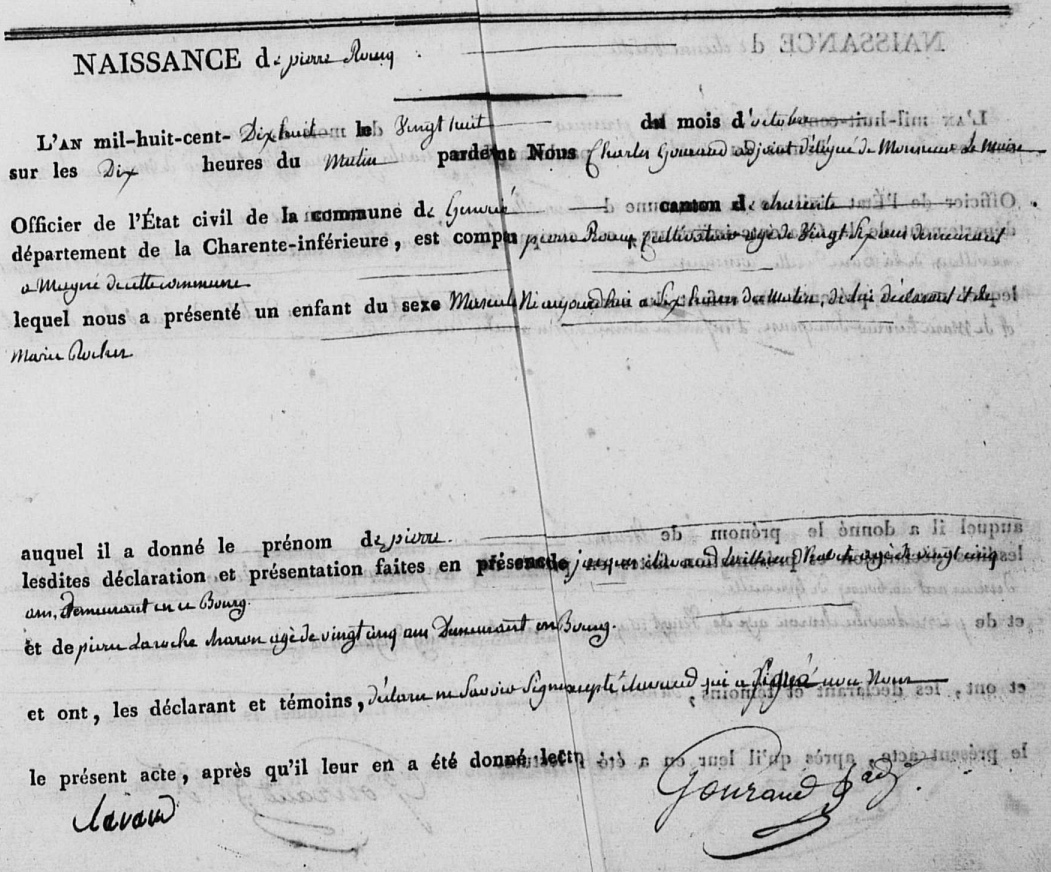 NAISSANCE de pierre
L'AN mil-huit-cent- Dixhuit le Vingt huit du mois d'octobre
sur les Dix heures du Matin pardevant Nous Charles Gouraud adjoint délégué de Monsieur le Maire
Officier de l'État civil de la commune de canton de
département de la Charente-inférieure, est comparu pierre cultivateur agé de Vingt Six ans demeurant
a de cette commune
lequel nous a présenté un enfant du sexe Masculin Né aujourdhui a Six heures du Matin, de lui déclarant et de
Marie Rocher.
auquel il a donné le prénom de pierre.
lesdites déclaration et présentation faites en présence de jacques agé de vingt cinq
ans, Demeurant en ce Bourg.
et de pierre Laroche agé de vingt cinq ans Demeurant en Bourg.
et ont, les déclarant et témoins, déclaré ne Savoir Signer excepté qui a Signé avec Nous
le présent acte, après qu'il leur en a été donné lecture
Gouraud adj.